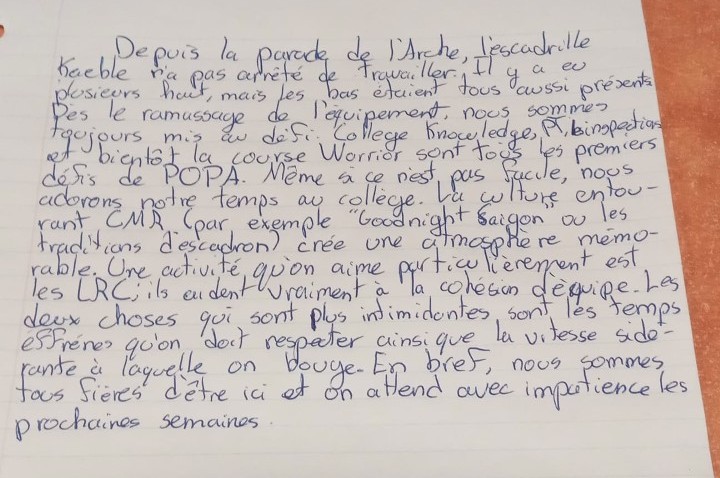 Depuis la parade de l'Arche, l'escadrille
Kaeble n'a pas arrêté de travailler. Il y a eu
plusieurs haut, mais les bas étaient tous aussi présents.
Dès le ramassage de l'équipement, nous sommes
toujours mis au défi. College Knowledge, PT, inspections
et bientôt la course Worrior sont tous les premiers
défis de POPA. Même si ce n'est pas facile, nous
adorons notre temps au collège. La culture entou-
rant CMR (par exemple "Goodnight Saigon" ou les
traditions d'escadron) crée une atmosphère mémo-
rable. Une activité qu'on aime particulièrement est
les LRC; ils aident vraiment à la cohésion d'équipe. Les
deux choses qui sont plus intimidantes sont les temps
effrénés qu'on doit respecter ainsi que la vitesse sidé-
rante à laquelle on bouge. En bref, nous sommes
tous fières d'être ici et on attend avec impatience les
prochaines semaines.